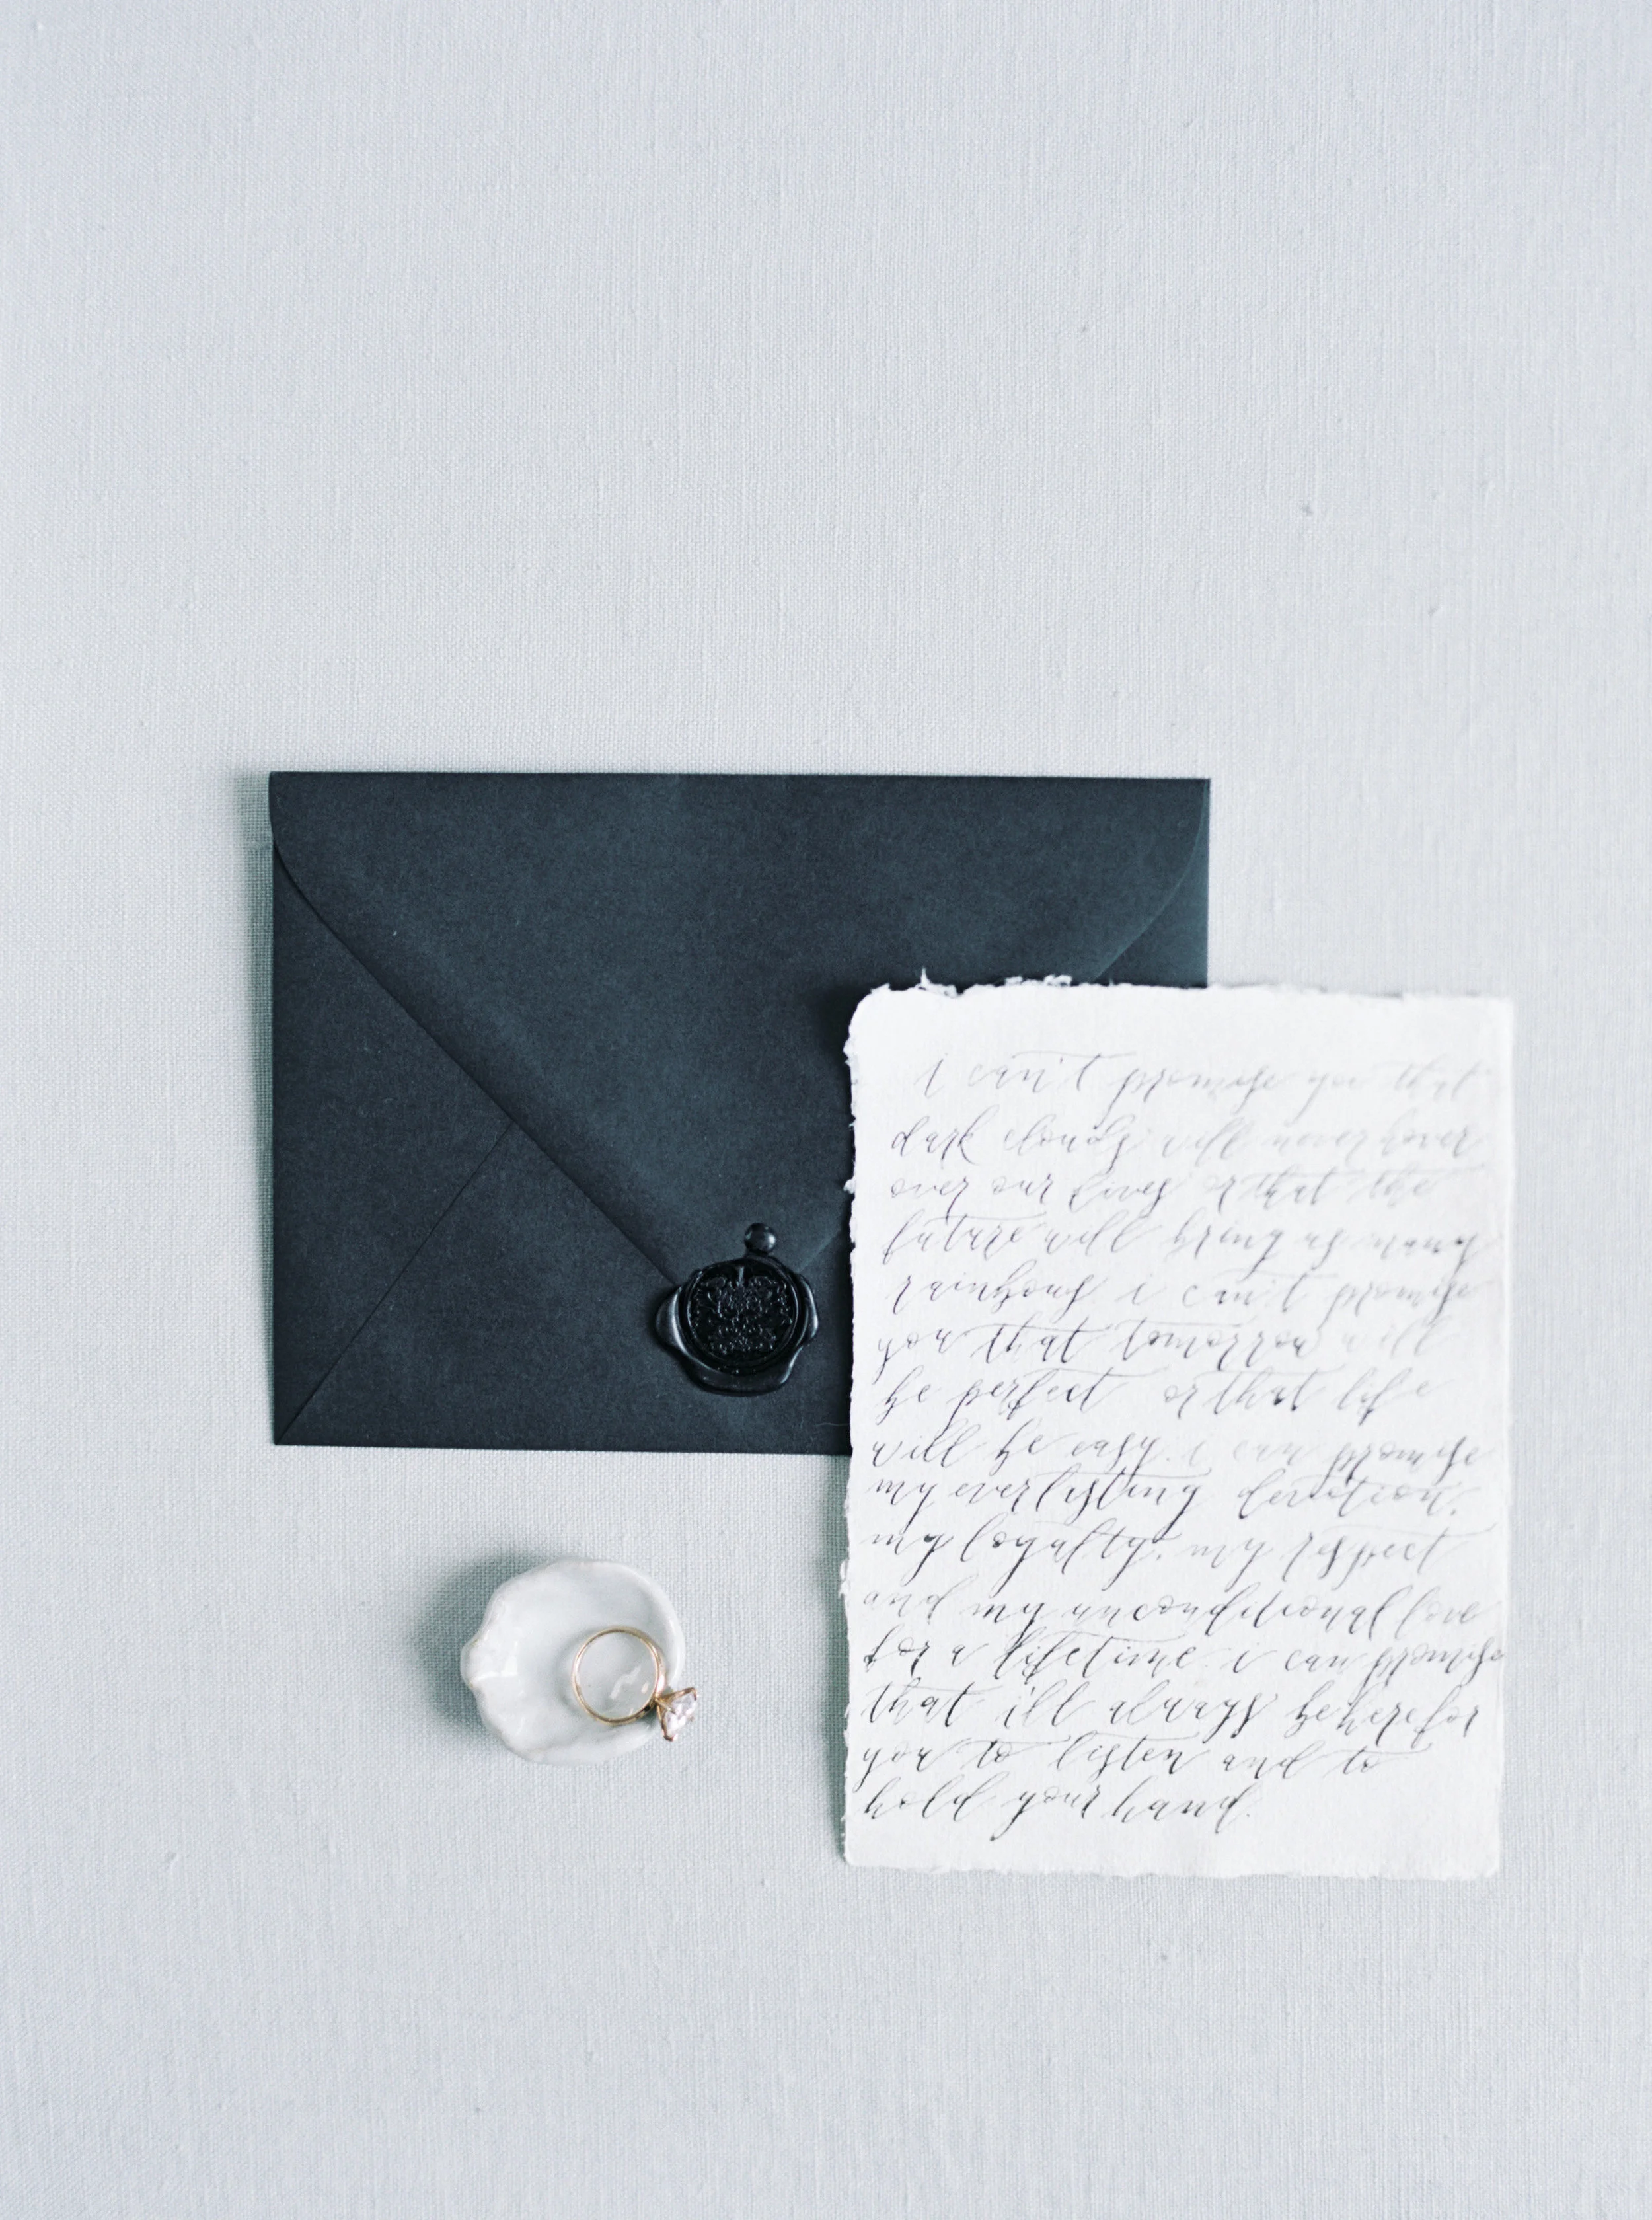 i can't promise you that
dark clouds will never hover
over our lives or that the
future will bring us many
rainbows i can't promise
you that tomorrow will
be perfect or that life
will be easy. i can promise
my everlasting devotion,
my loyalty, my respect
and my unconditional love
for a lifetime. i can promise
that i'll always be here for
you to listen and to
hold your hand.